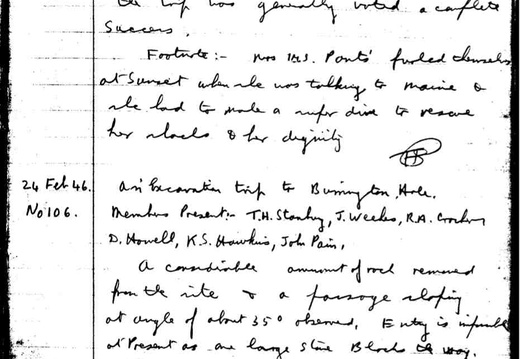 the trip was generally voted a complete
success.
Footnote:- Mrs Pants' furled themselves
at Sunset when she was talking to Maine &
she had to make a super dive to rescue
her slacks & her dignity
24 Feb 46.
No 106.
An Excavation trip to Burrington Hole.
Members Present:- T.H. Stanbury, J. Weekes, R.A. Crocker,
D. Howell, K.S. Hawkins, John Pain.
A considerable amount of rock removed
from the site & a passage sloping
at angle of about 35° observed. Entry is impossible
at Present as one large Stone Blocks the way.